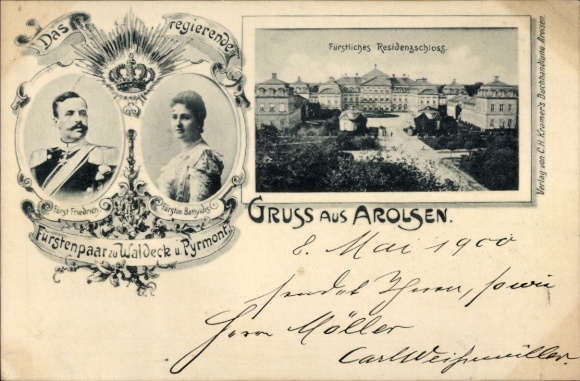 Das regierende
Fürst Friedrich
Fürstin Bathildis
Fürstenpaar zu Waldeck u Pyrmont.
Fürstliches Residenzschloss.
Verlag von C.H. Kramer's Buchhandlung Arolsen.
GRUSS AUS AROLSEN.
8. Mai 1900
sendet Ihnen, sowie
Herrn Möller
Carl Weißmüller.